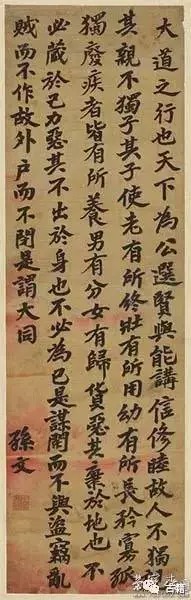 大道之行也天下為公選賢與能講信修睦故人不獨親
其親不獨子其子使老有所終壯有所用幼有所長矜寡孤
獨廢疾者皆有所養男有分女有歸貨惡其棄於地也不
必藏於己力惡其不出於身也不必為己是謀閉而不興盜竊亂
賊而不作故外戶而不閉是謂大同
孫文
古籍